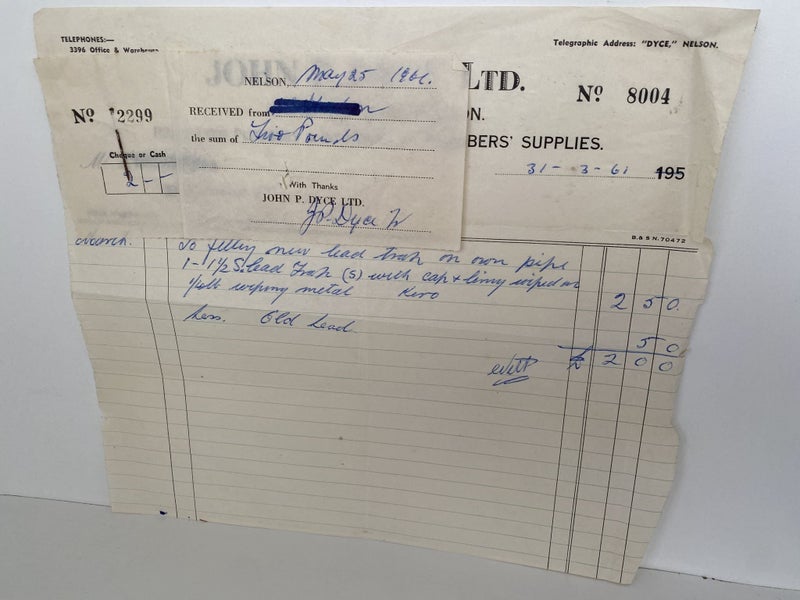 TELEPHONES:—
3396 Office & Warehouse
Telegraphic Address: "DYCE," NELSON.
JOHN
LTD.
Nº 8004
ON.
BERS' SUPPLIES.
31 - 3 - 61 195
B.&S N.70472
Nº 12299
Cheque or Cash
2 - -
NELSON, May 25 1961.
RECEIVED from
the sum of Two Pounds
With Thanks
JOHN P. DYCE LTD.
J.P. Dyce
March. To filling new lead trap on own pipe
1 - 1½ S. Lead Trap (S) with cap & lining wiped on
¼ lb wiping metal Kero 2 5 0.
Less. Old Lead 5 0
£ 2 0 0